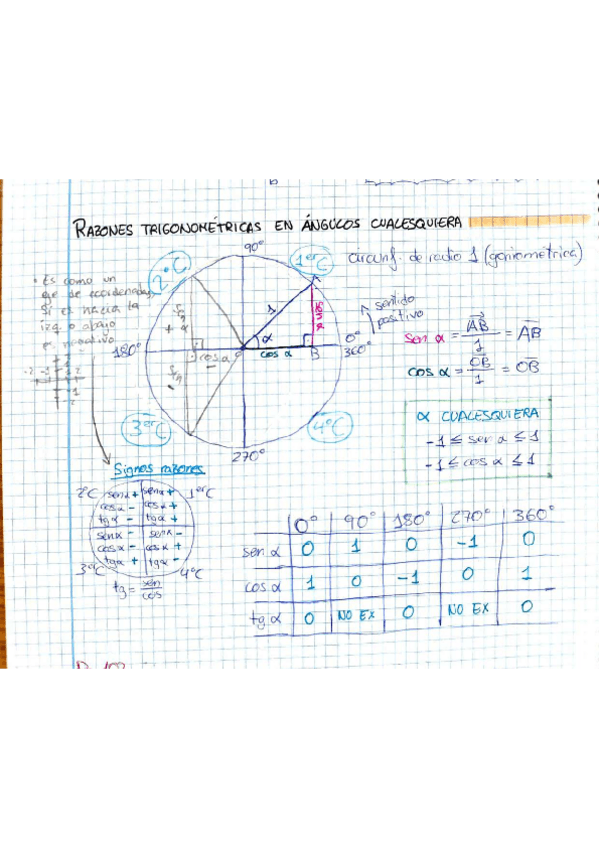 RAZONES TRIGONOMÉTRICAS EN ÁNGULOS CUALESQUIERA
circunf. de radio 1 (goniométrica)
90°
2ºC
1erC
• Es como un
eje de coordenadas
Si es hacia la
izq o abajo
es negativo
-2 -1 1 2
-1
-2
180°
sen α
+
cos α
sen
1
α
sen α
cos α
A
B
0°
360°
sentido
positivo
sen α = AB / 1 = AB
cos α = OB / 1 = OB
3erC
4ºC
270°
α CUALESQUIERA
-1 ≤ sen α ≤ 1
-1 ≤ cos α ≤ 1
Signos razones
2ºC sen α + sen α + 1erC
cos α - cos α +
tg α - tg α +
sen α - sen α -
cos α - cos α +
tg α + tg α -
3erC 4ºC
tg = sen / cos
0° 90° 180° 270° 360°
sen α 0 1 0 -1 0
cos α 1 0 -1 0 1
tg α 0 NO EX 0 NO EX 0